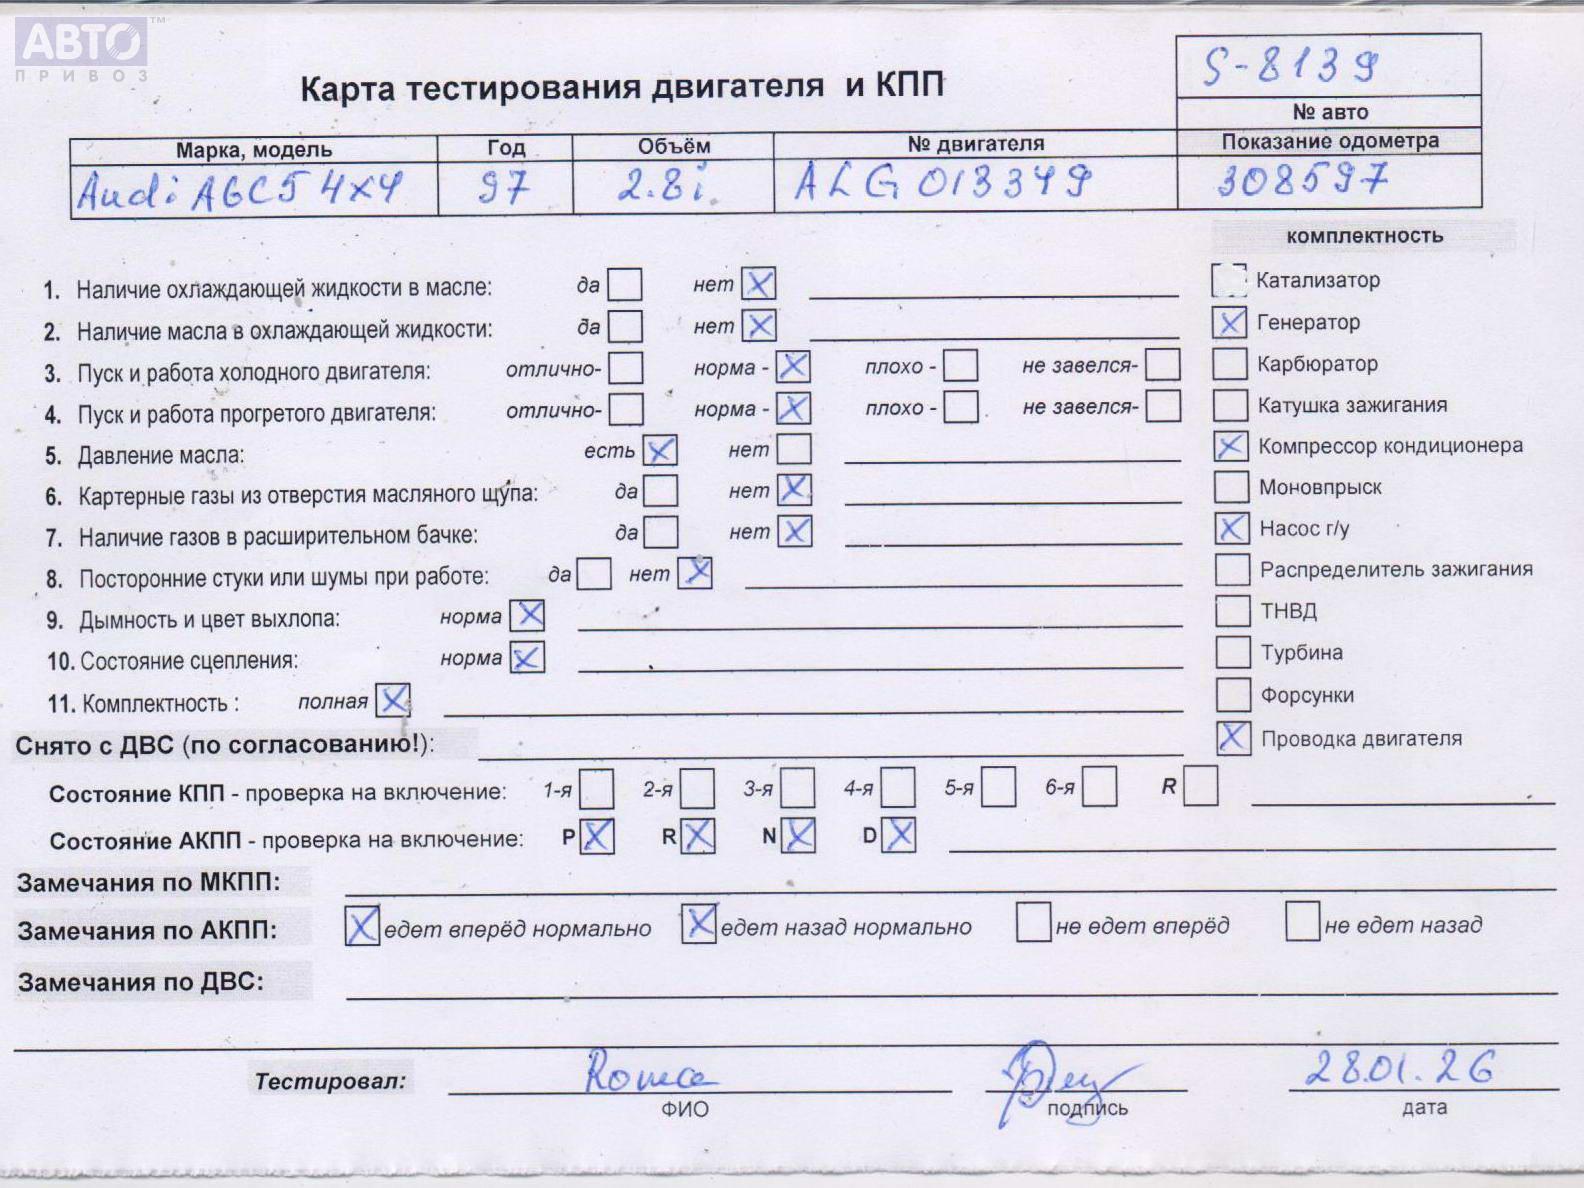 АВТО ™
ПРИВОЗ
S-8139
Карта тестирования двигателя и КПП
№ авто
Марка, модель Год Объём № двигателя Показание одометра
Audi A6C5 4x4 97 2.8i ALG 013349 308597
комплектность
1. Наличие охлаждающей жидкости в масле: да нет X Катализатор
2. Наличие масла в охлаждающей жидкости: да нет X X Генератор
3. Пуск и работа холодного двигателя: отлично- норма - X плохо - не завелся- Карбюратор
4. Пуск и работа прогретого двигателя: отлично- норма - X плохо - не завелся- Катушка зажигания
5. Давление масла: есть X нет X Компрессор кондиционера
6. Картерные газы из отверстия масляного щупа: да нет X Моновпрыск
7. Наличие газов в расширительном бачке: да нет X X Насос г/у
8. Посторонние стуки или шумы при работе: да нет X Распределитель зажигания
9. Дымность и цвет выхлопа: норма X ТНВД
10. Состояние сцепления: норма X Турбина
11. Комплектность : полная X Форсунки
Снято с ДВС (по согласованию!): X Проводка двигателя
Состояние КПП - проверка на включение: 1-я 2-я 3-я 4-я 5-я 6-я R
Состояние АКПП - проверка на включение: P X R X N X D X
Замечания по МКПП:
Замечания по АКПП: X едет вперёд нормально X едет назад нормально не едет вперёд не едет назад
Замечания по ДВС:
Тестировал: Рома 28.01.26
ФИО подпись дата